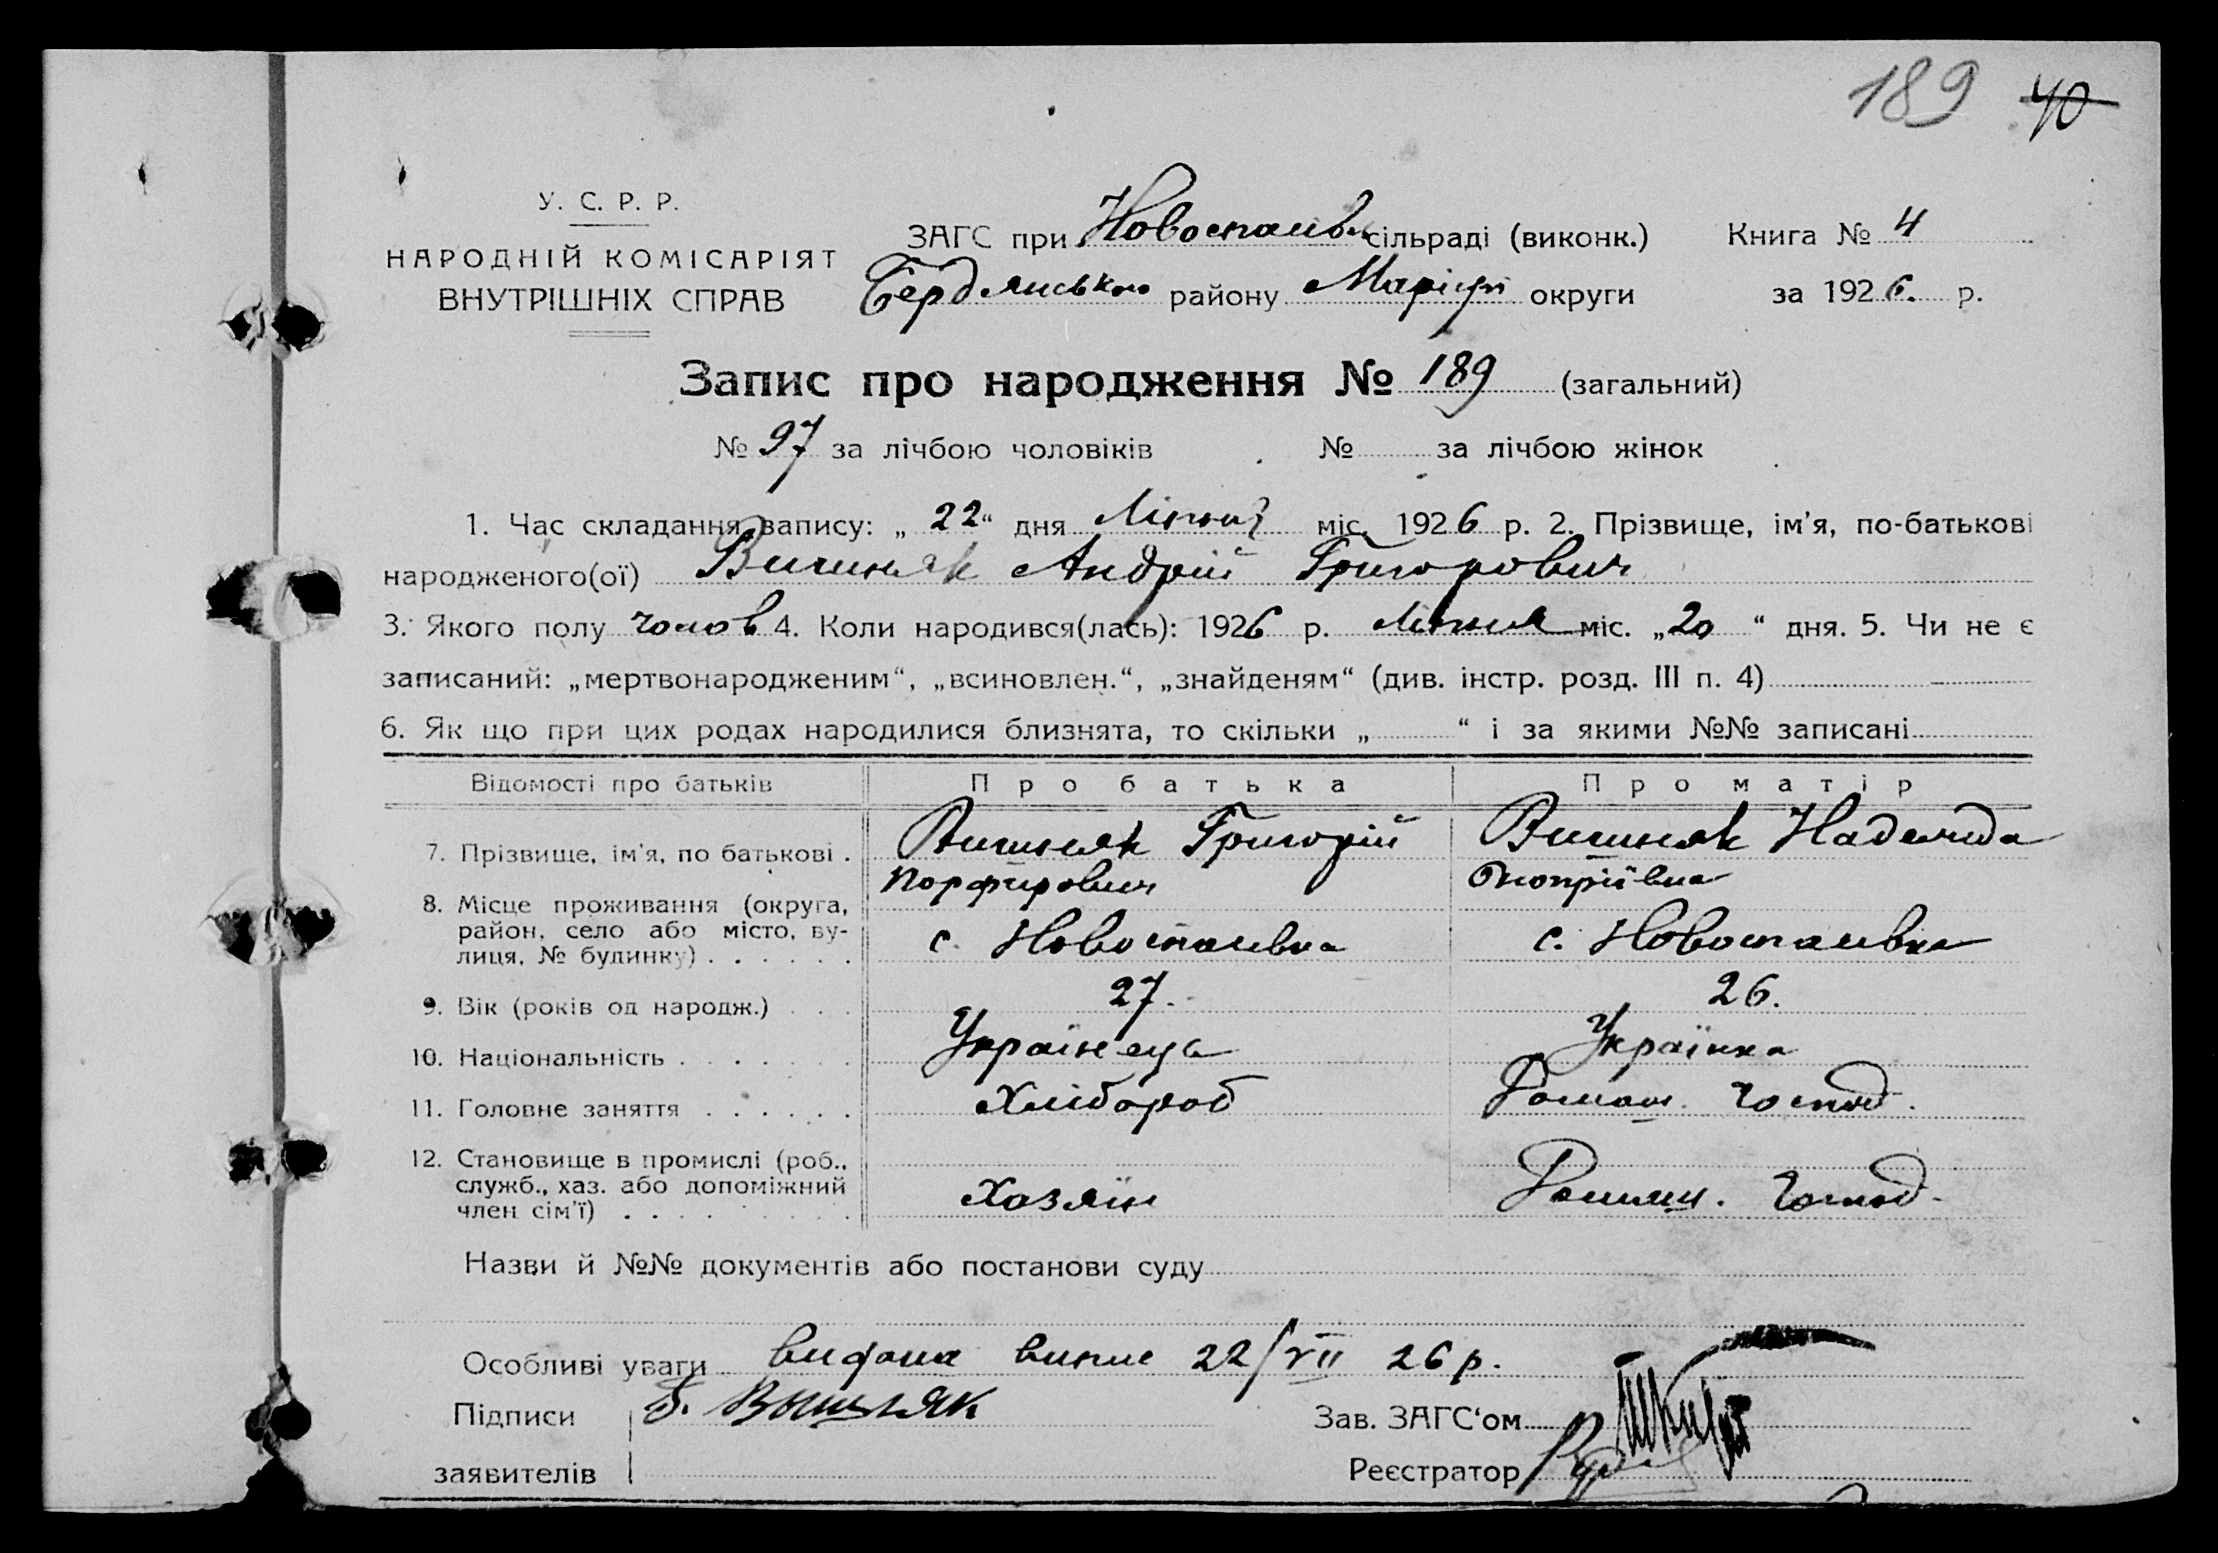 189 40
У. С. Р. Р.
НАРОДНІЙ КОМІСАРІЯТ
ВНУТРІШНІХ СПРАВ
ЗАГС при Новоспаїв сільраді (виконк.) Книга № 4
Бердянського району Маріуп округи за 1926. р.
Запис про народження № 189 (загальний)
№ 97 за лічбою чоловіків № за лічбою жінок
1. Час складання запису: „ 22 “ дня Липня міс. 1926 р. 2. Прізвище, ім'я, по-батькові
народженого(ої) Вишняк Андрій Григорович
3. Якого полу чолов 4. Коли народився(лась): 1926 р. Липня міс. „ 20 “ дня. 5. Чи не є
записаний: „мертвонародженим“, „всиновлен.“, „знайденям“ (див. інстр. розд. III п. 4)
6. Як що при цих родах народилися близнята, то скільки „ “ і за якими №№ записані
Відомості про батьків Про батька Про матір
7. Прізвище, ім'я, по батькові . Вишняк Григорій Порфирович Вишняк Надежда
8. Місце проживання (округа, район, село або місто, вулиця, № будинку) . . . . . . с. Новоспаївка с. Новоспаївка
9. Вік (років од народж.) . . . 27. 26.
10. Національність . . . . . . . Українець Українка
11. Головне заняття . . . . . . Хлібороб Домаш. господ.
12. Становище в промислі (роб., служб., хаз. або допоміжний член сім'ї) . . . . . . . . . Хазяїн Домаш. господ.
Назви й №№ документів або постанови суду
Особливі уваги видана випис 22/VII 26 р.
Підписи Вишняк Зав. ЗАГС‘ом
заявителів Реєстратор